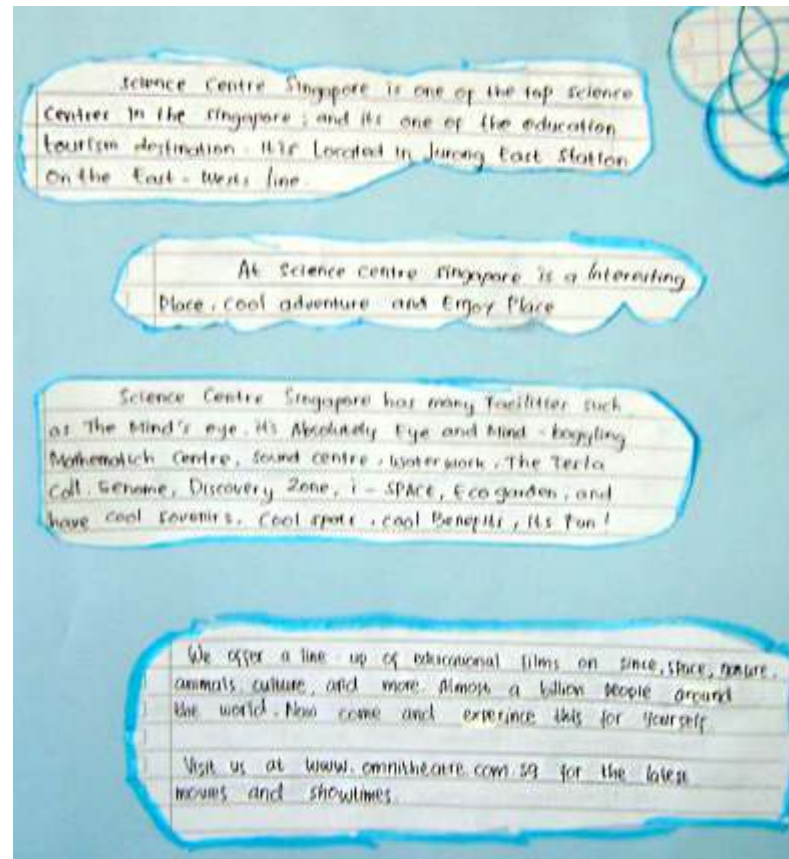 Science Centre Singapore is one of the top science
Centres in the singapore, and its one of the education
tourism destination. It is Located in Jurong East Station
on the East - Wests line.
At Science centre singapore is a Interesting
Place, cool adventure and Enjoy Place
Science Centre Singapore has many Facilities such
as The Mind's eye, it's Absolutely Eye and Mind - boggling
Centre, Sound centre, Waterwork, The Tesla
Coil, Genome, Discovery Zone, i - SPACE, Eco garden, and
have cool sovenirs, Cool spots, cool Benefits, its Fun!
We offer a line up of educational films on since, space, nature,
animals, culture, and more. Almost a billion people around
the world. Now come and experince this for yourself.
Visit us at www.omnitheatre.com.sg for the latest
movies and showtimes.